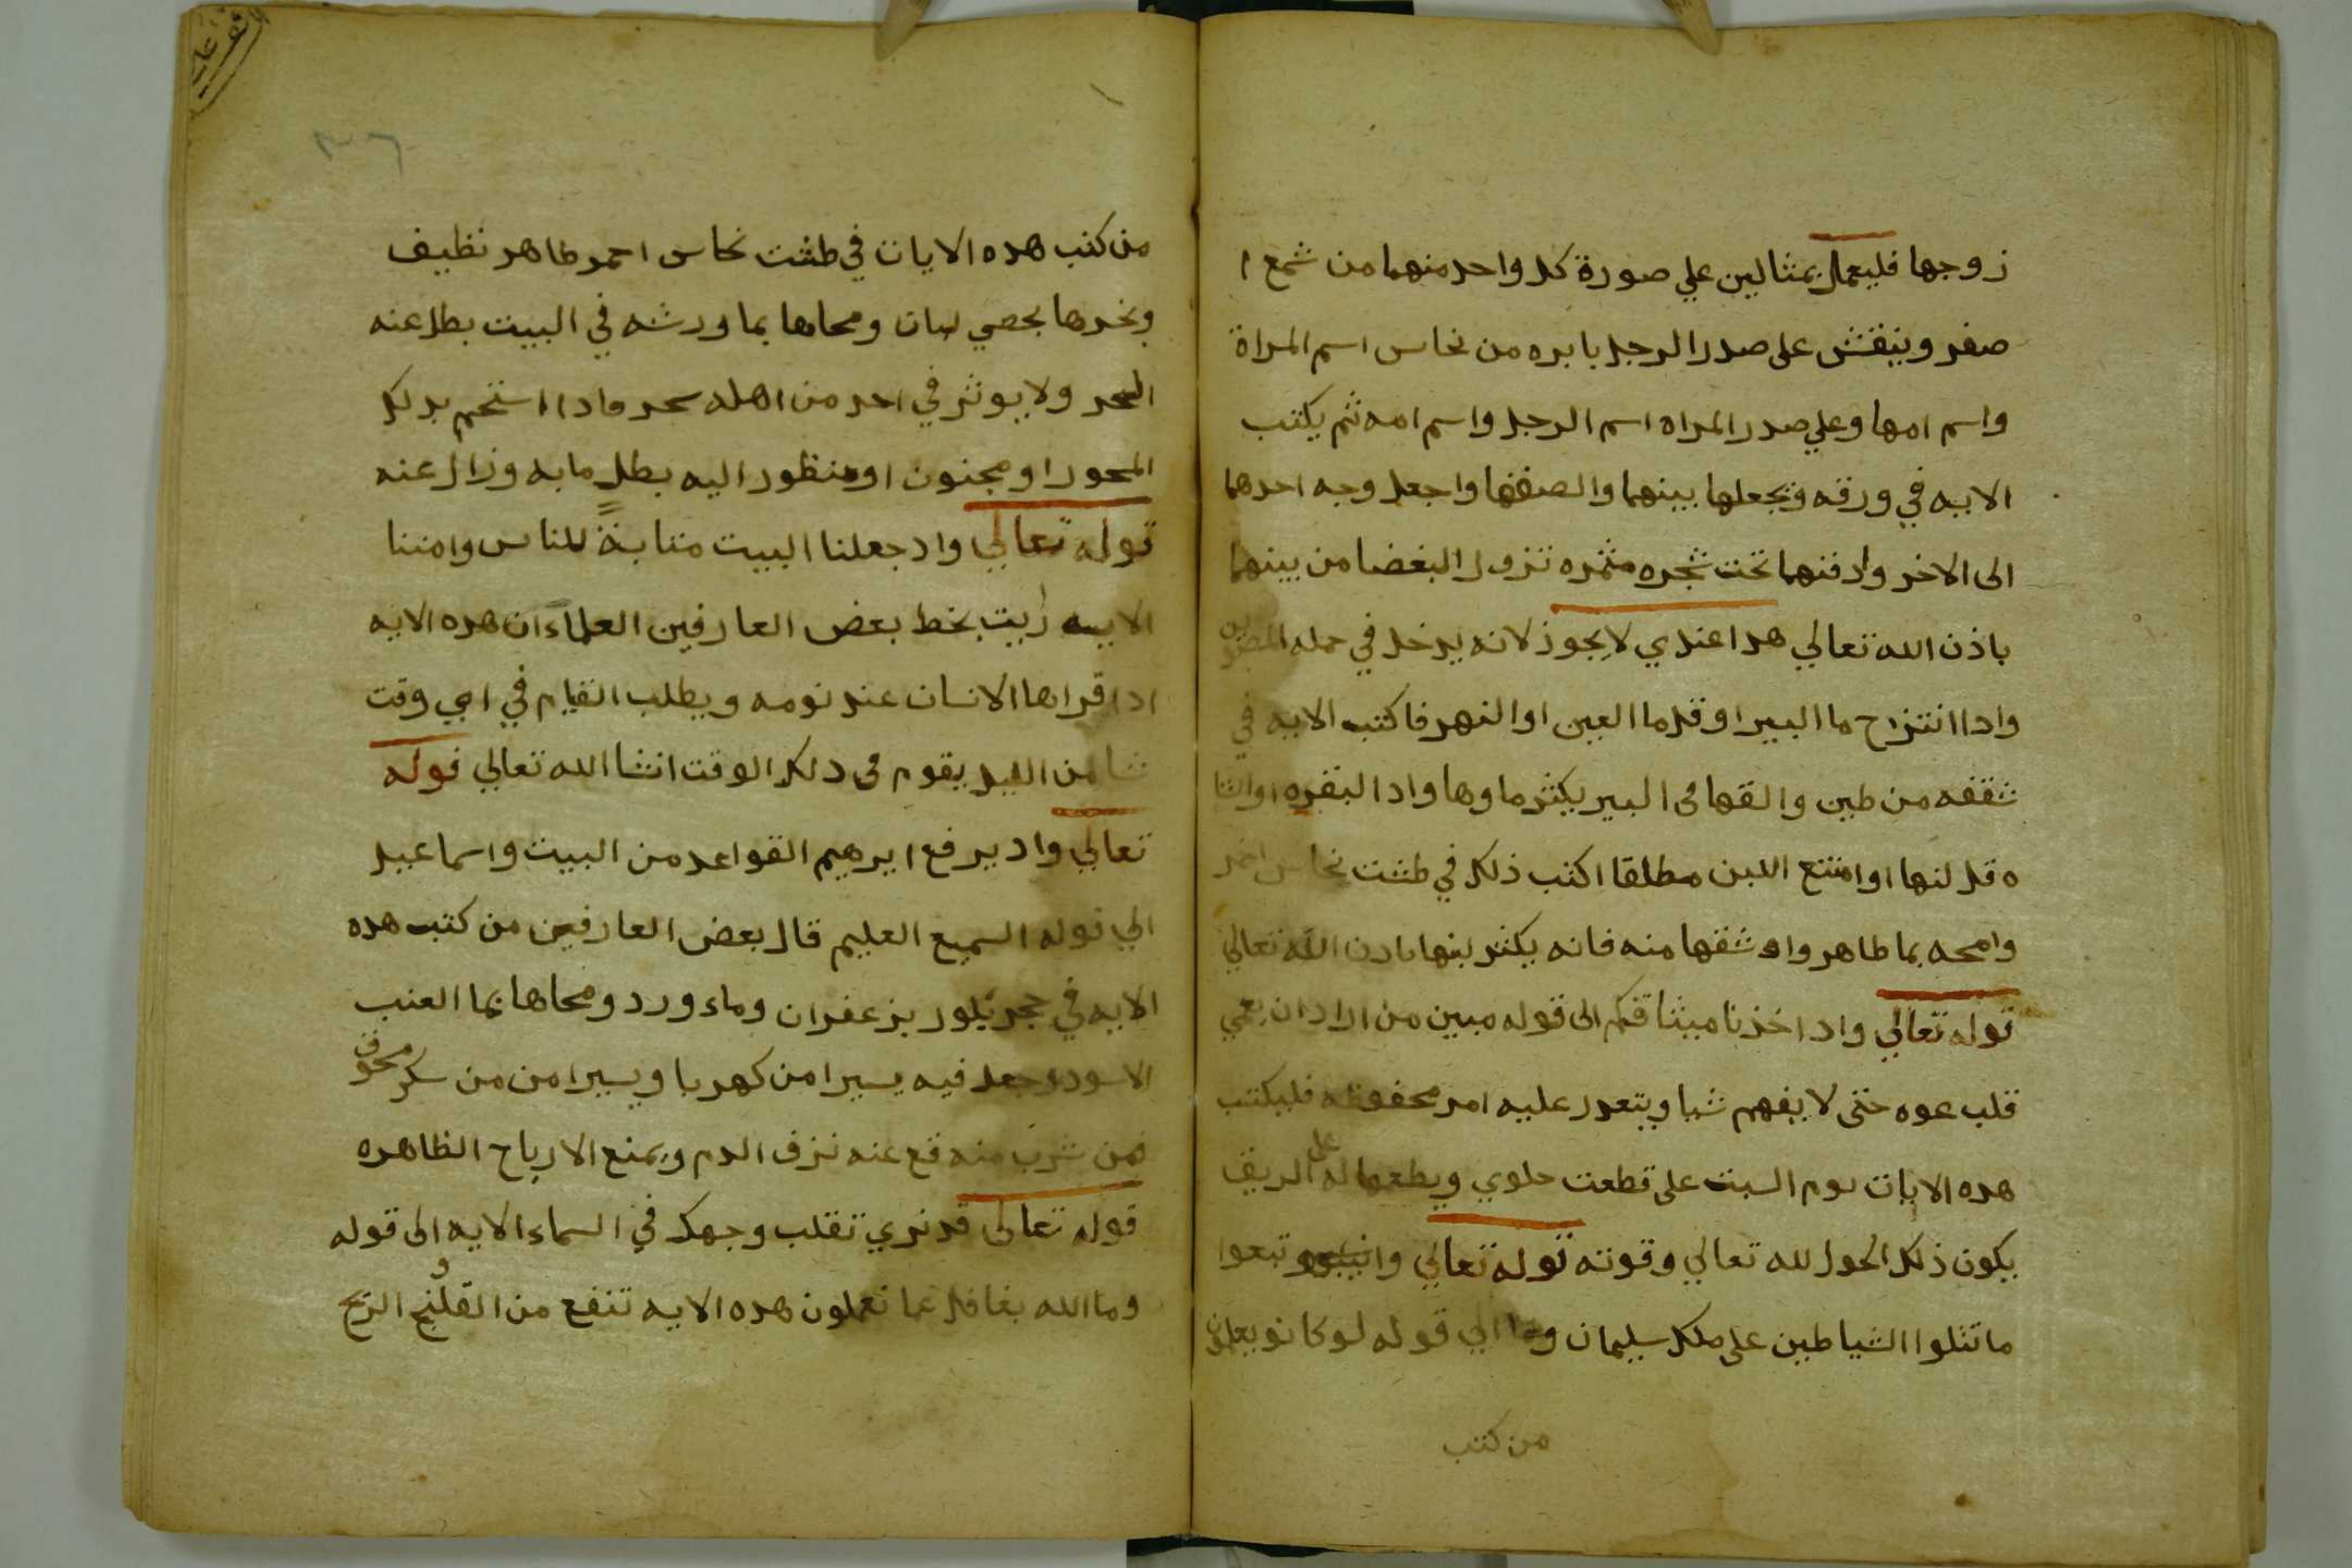 زوجها فليعمل بمثالين علي صورة كل واحد منهما من شمع ا
صفر وينقش على صدر الرجل بابره من نحاس اسم المراة
واسم امها وعلي صدر المراه اسم الرجل واسم امه ثم يكتب
الايه في ورقه ويجعلها بينهما والصقها واجعل وجه احدهما
الى الاخر وادفنهما تحت شجره مثمره تزول البغضا من بينهما
باذن الله تعالي هدا عندي لايجوز لانه يدخل في حمله
وادا انتزح ما البير او قل ما العين او النهر فاكتب الايه في
شقفه من طين والقها في البير يكثر ماوها وادا البقره او الشا
ه قل لنها او امتنع اللبن مطلقا اكتب ذلك في طشت نحاس احمر
وامحه بما طاهر واو شقها منه فانه يكثر لبنها بادن الله تعالي
قوله تعالي واد اخذنا ميثاقكم الى قوله مبين من اراد ان يعمي
قلب عوه حتى لا يفهم شيا ويتعدر عليه امر محفوظه فليكتب
هده الايات يوم السبت على قطعت حلوي ويطعمها له على الريق
يكون ذلك الحول لله تعالي وقوته قوله تعالي وتبعوا
ما تتلوا الشياطين على ملك سليمان الي قوله لو كانو يعلمون
من كتب
٣٦
من كتب هده الايات في طشت نحاس احمر طاهر نظيف
وبخرها بحصي لبان ومحاها بما ورشه في البيت بطل عنه
السحر ولا يوثر في احد من اهله سحر وادا استحم بدلك
المسحور او مجنون او منظور اليه بطل مابه وزال عنه
قوله تعالي واد جعلنا البيت مثابة للناس وامننا
الايه رايت بخط بعض العارفين العلماء ان هده الايه
ادا قراها الانسان عند نومه ويطلب القيام في اي وقت
شا من الليل يقوم في دلك الوقت انشا الله تعالي قوله
تعالي واد يرفع ابرهيم القواعد من البيت واسماعيل
الي قوله السميع العليم قال بعض العارفين من كتب هده
الايه في حجر بلور بزعفران وماء ورد ومحاها بما العنب
الاسود وجعل فيه يسيرا من كهربا ويسيرا من من سكر مسحوق
فمن شرب منه قع عنه نزف الدم ويمنع الارياح الظاهره
قوله تعالى قد نري تقلب وجهك في السماء الايه الى قوله
وما الله بغافل عما تعملون هده الايه تنفع من القلنج الريح